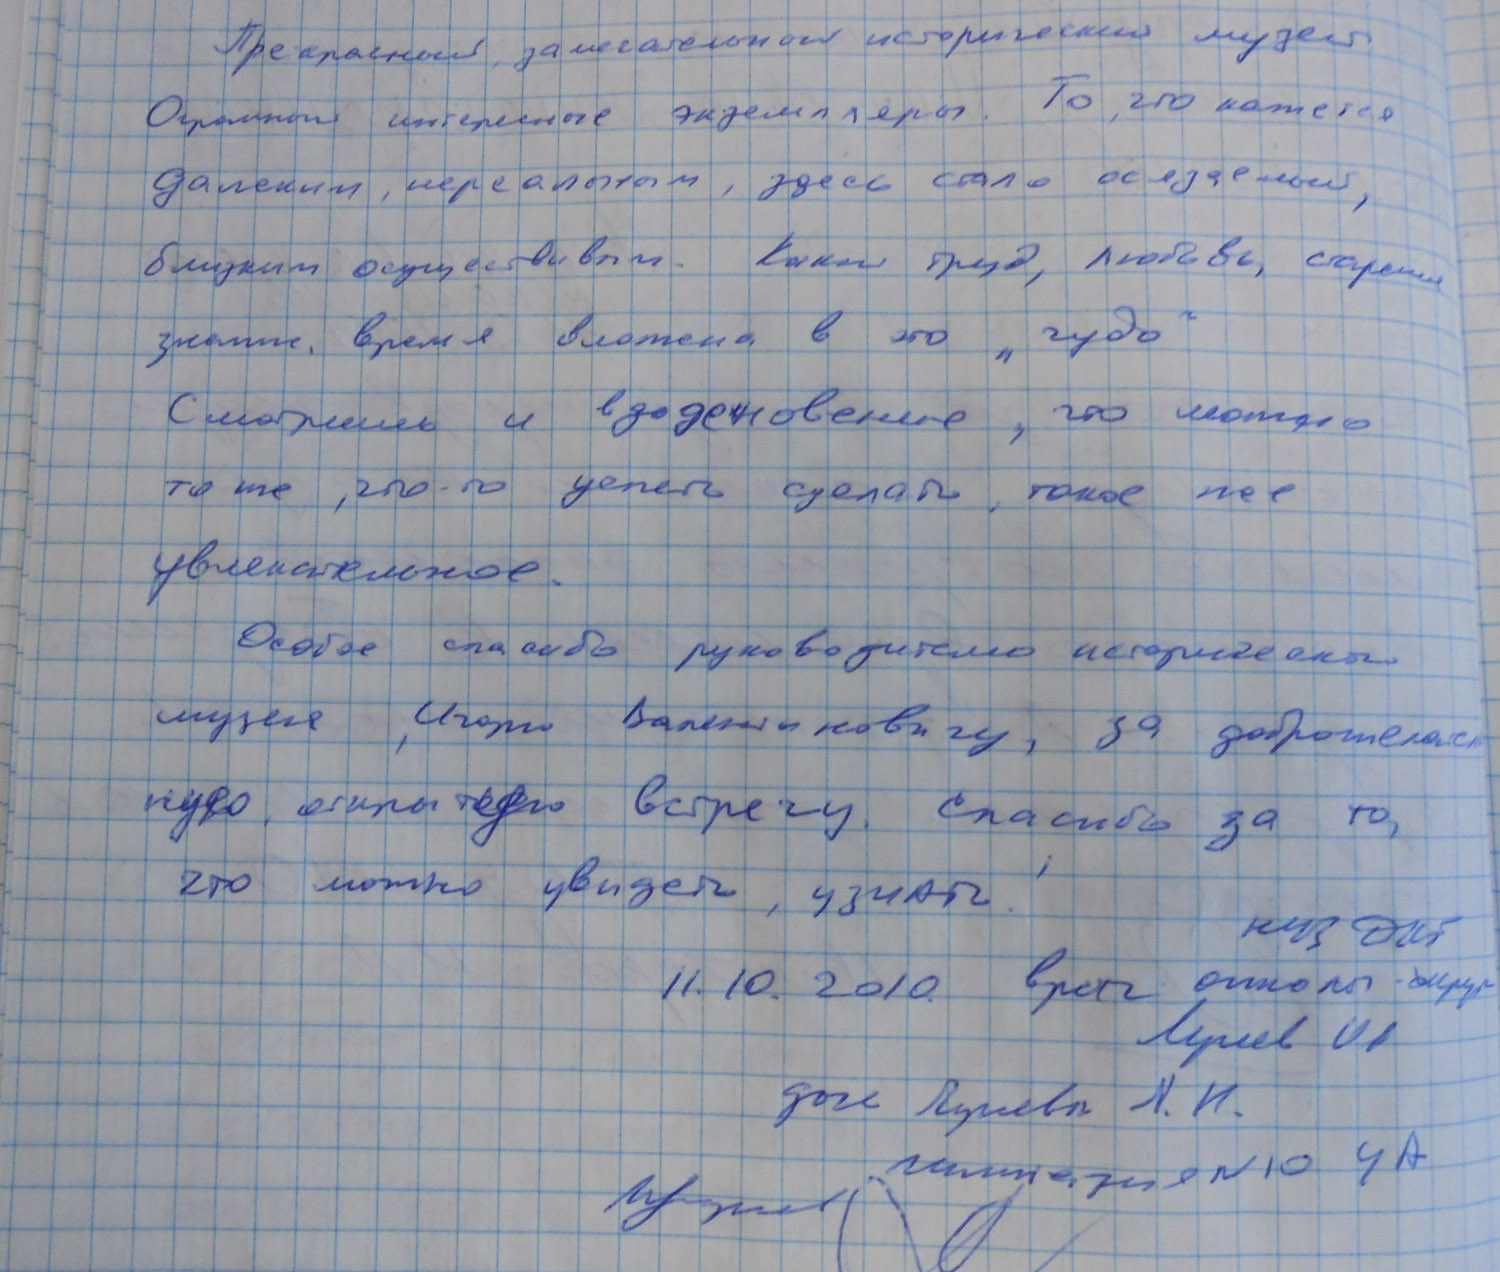 Прекрасный, замечательный исторический музей
Огромный интересные экземпляры. То, что кажется
далеким, нереальным, здесь стало осязаемый,
близким осуществивым. Какой труд, любовь, старения
знание, время вложена в это „чудо“
Смотришь и вдодгновение, что можно
то же, что-то успеть сделать, такое же
увлекательное.
Особое спасибо руководителю исторического
музея, Игорю Валентиновичу, за доброжелатель
ную, открытую встречу. Спасибо за то,
что можно увидеть, узнать!
НУЗ ДКБ
11.10.2010. врач
дочь А. И.
гимназия N 10 4 А